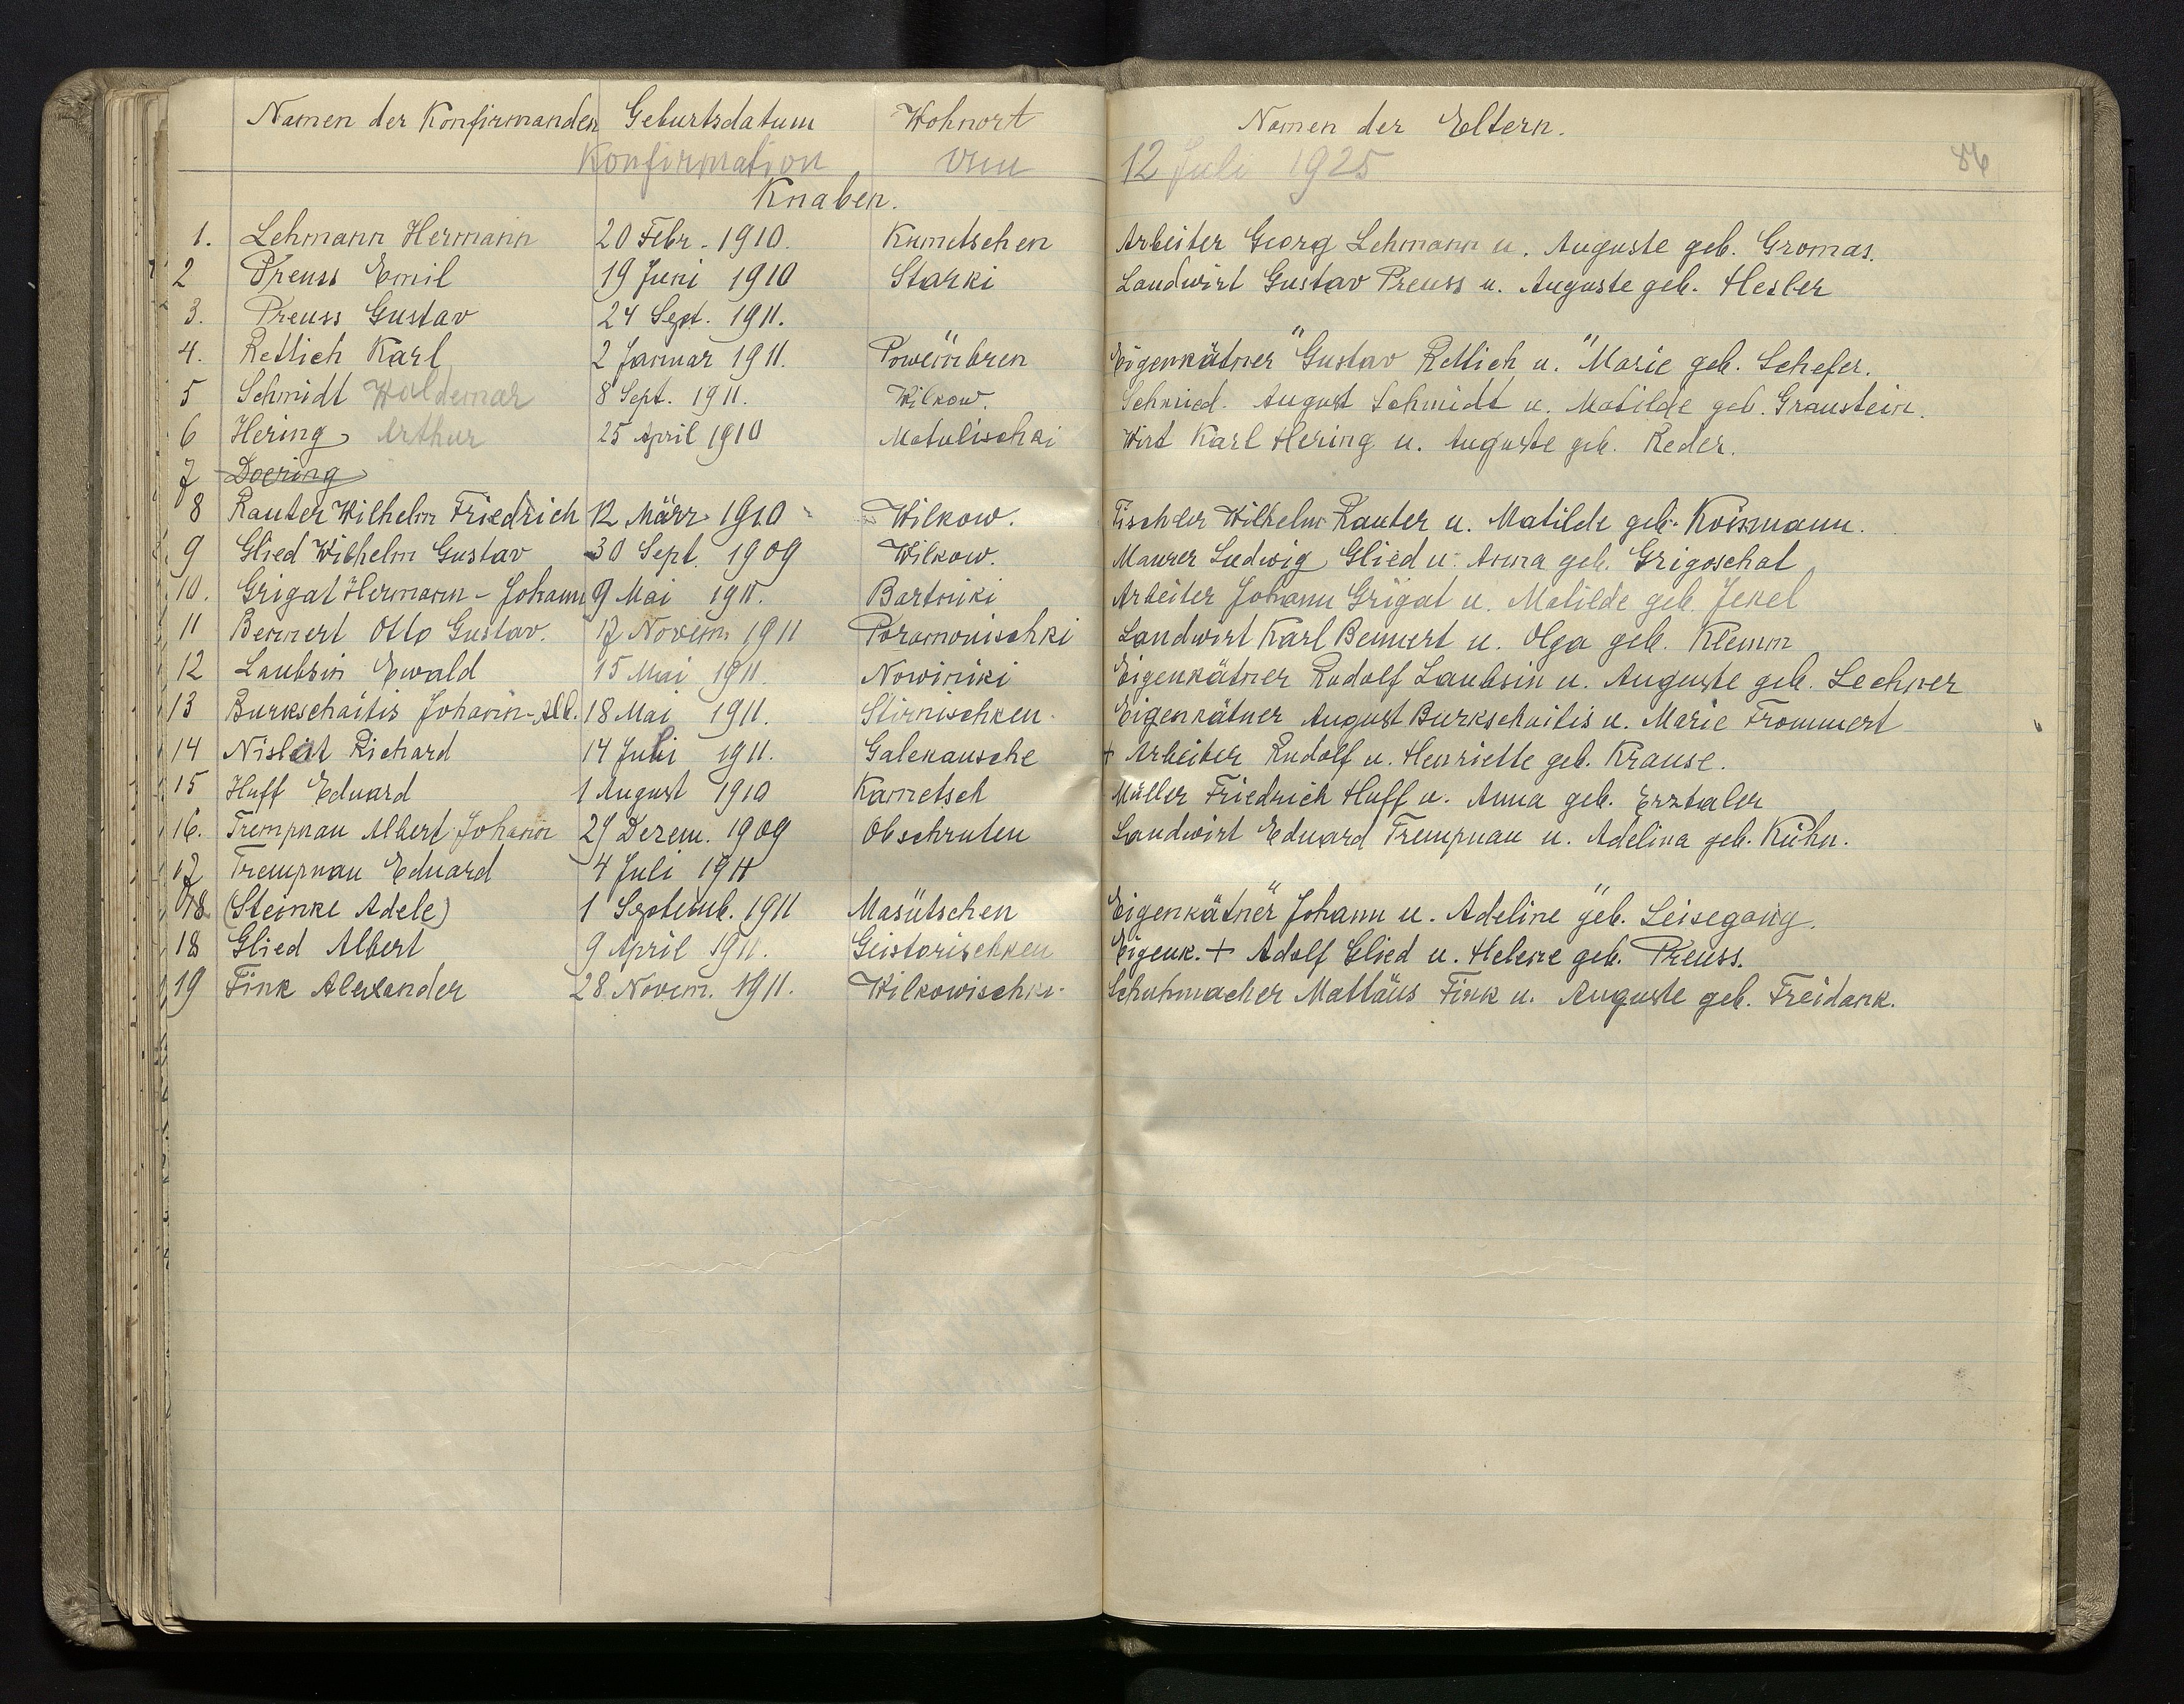 Namen der Konfirmanden Geburtsdatum Wohnort Namen der Eltern.
Konfirmation vom 12 Juli 1925 86
Knaben.
1. Lehmann Hermann 20 Febr. 1910. Kumetschen Arbeiter Georg Lehmann u. Auguste geb. Gromas.
2 Preuss Emil 19 Juni 1910 Starki Landwirt Gustav Preuss u. Auguste geb. Hesler
3. Preuss Gustav 24 Sept. 1911. " "
4. Retlich Karl 2 Januar 1911. Powembren Eigenkätner Gustav Retlich u. Marie geb. Schefer.
5 Schmidt Woldemar 8 Sept. 1911. Wilkow. Schmied. August Schmidt u. Matilde geb. Graustein.
6 Hering Arthur 25 April 1910 Matulischki Wirt Karl Hering u. Auguste geb. Reder.
7 Doering
8 Rauter Wilhelm Friedrich 12 März 1910 Wilkow. Tischler Wilhelm Rauter u. Matilde geb. Kossmann.
9 Glied Wilhelm Gustav 30 Sept. 1909 Wilkow. Maurer Ludwig Glied u. Anna geb. Grigoschat
10. Grigat Hermann-Johann 9 Mai 1911. Bartniki Arbeiter Johann Grigat u. Matilde geb. Jekel
11 Bennert Otto Gustav. 17 Novem. 1911 Poramonischki Landwirt Karl Bennert u. Olga geb. Klemm
12 Laubsin Ewald 15 Mai 1911. Nowiniki Eigenkätner Rudolf Laubsin u. Auguste geb. Lechner
13 Burkschaitis Johann-Alb. 18 Mai 1911. Stirnischken. Eigenkätner August Burkschaitis u. Marie Frommert
14 Nislat Richard 14 Juli 1911. Galekausche + Arbeiter Rudolf u. Henriette geb. Krause.
15 Huff Eduard 1 August 1910 Kametsch Müller Friedrich Huff u. Anna geb. Erztaler
16. Trempnau Albert Johann 27 Dezem. 1909 Obschruten Landwirt Eduard Trempnau u. Adelina geb. Kühn.
17 Trempnau Eduard 4 Juli 1911 " "
18. (Steinke Adele) 1 Septemb. 1911 Masütschen Eigenkätner Johann u. Adeline geb. Leisegang.
18 Glied Albert 9 April 1911. Geistorischken Eigenk. + Adolf Glied u. Helene geb. Preuss.
19 Fink Alexander 28. Novem. 1911. Wilkowischki. Schuhmacher Mattäus Fink u. Auguste geb. Freidank.